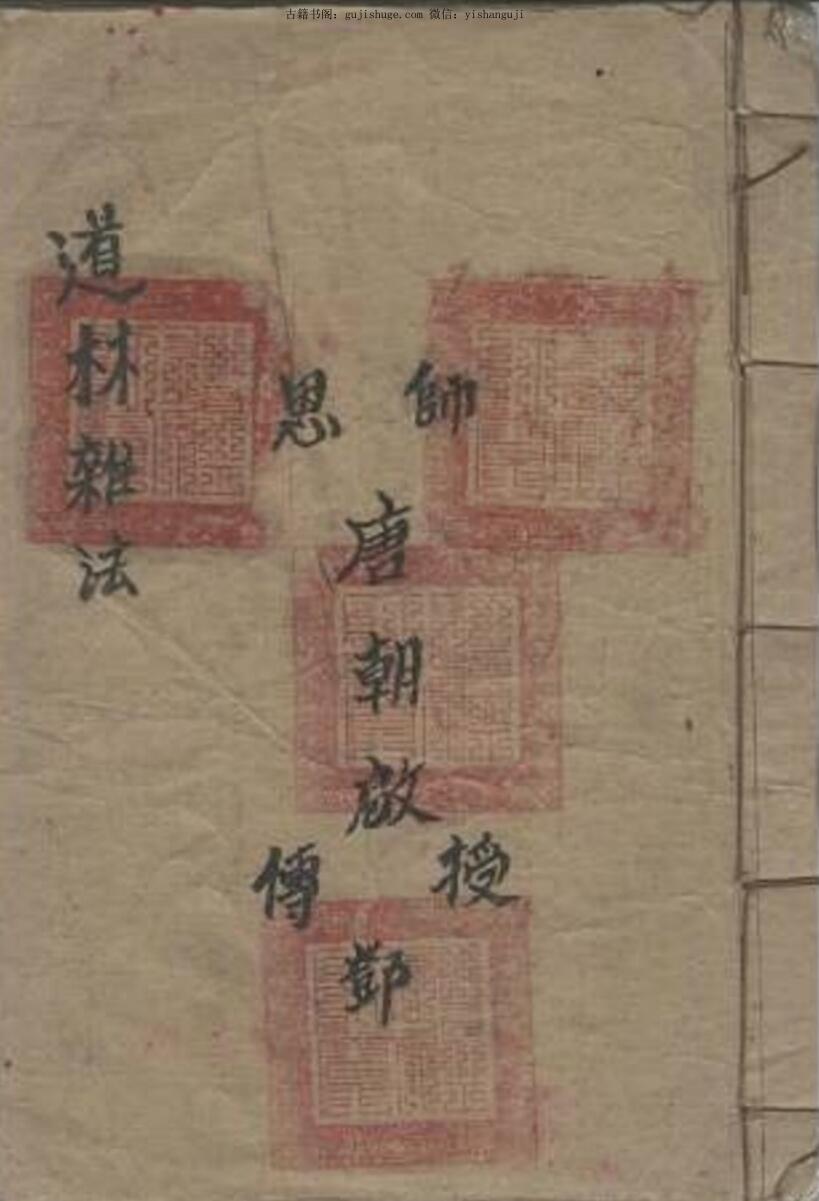 古籍书阁：gujishuge.com 微信：yishanguji
師恩
唐朝啟
授傳
鄧
道林雜法